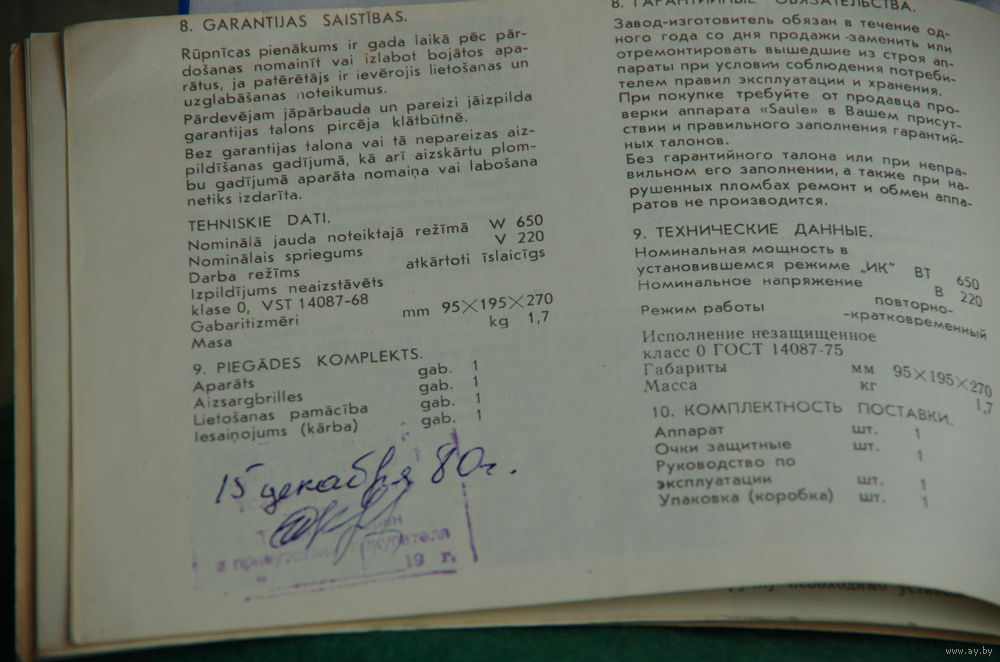 8. GARANTIJAS SAISTĪBAS.
Rūpnīcas pienākums ir gada laikā pēc pār-
došanas nomainīt vai izlabot bojātos apa-
rātus, ja patērētājs ir ievērojis lietošanas un
uzglabāšanas noteikumus.
Pārdevējam jāpārbauda un pareizi jāizpilda
garantijas talons pircēja klātbūtnē.
Bez garantijas talona vai tā nepareizas aiz-
pildīšanas gadījumā, kā arī aizskārtu plom-
bu gadījumā aparāta nomaiņa vai labošana
netiks izdarīta.
TEHNISKIE DATI.
Nominālā jauda noteiktajā režīmā W 650
Nominālais spriegums V 220
Darba režīms atkārtoti īslaicīgs
Izpildījums neaizstāvēts
klase 0, VST 14087-68
Gabaritizmēri mm 95×195×270
Masa kg 1,7
9. PIEGĀDES KOMPLEKTS.
Aparāts gab. 1
Aizsargbrilles gab. 1
Lietošanas pamācība gab. 1
Iesaiņojums (kārba) gab. 1
15 декабря 80г.
в присутствии покупателя
" 19 г.
8. ГАРАНТИЙНЫЕ ОБЯЗАТЕЛЬСТВА.
Завод-изготовитель обязан в течение од-
ного года со дня продажи заменить или
отремонтировать вышедшие из строя ап-
параты при условии соблюдения потреби-
телем правил эксплуатации и хранения.
При покупке требуйте от продавца про-
верки аппарата «Saule» в Вашем присут-
ствии и правильного заполнения гарантий-
ных талонов.
Без гарантийного талона или при непра-
вильном его заполнении, а также при на-
рушенных пломбах ремонт и обмен аппа-
ратов не производится.
9. ТЕХНИЧЕСКИЕ ДАННЫЕ.
Номинальная мощность в
установившемся режиме „ИК" ВТ 650
Номинальное напряжение В 220
Режим работы повторно-
-кратковременный
Исполнение незащищенное
класс 0 ГОСТ 14087-75
Габариты мм 95×195×270
Масса кг 1,7
10. КОМПЛЕКТНОСТЬ ПОСТАВКИ.
Аппарат шт. 1
Очки защитные шт. 1
Руководство по
эксплуатации шт. 1
Упаковка (коробка) шт. 1
необходимо
www.ay.by